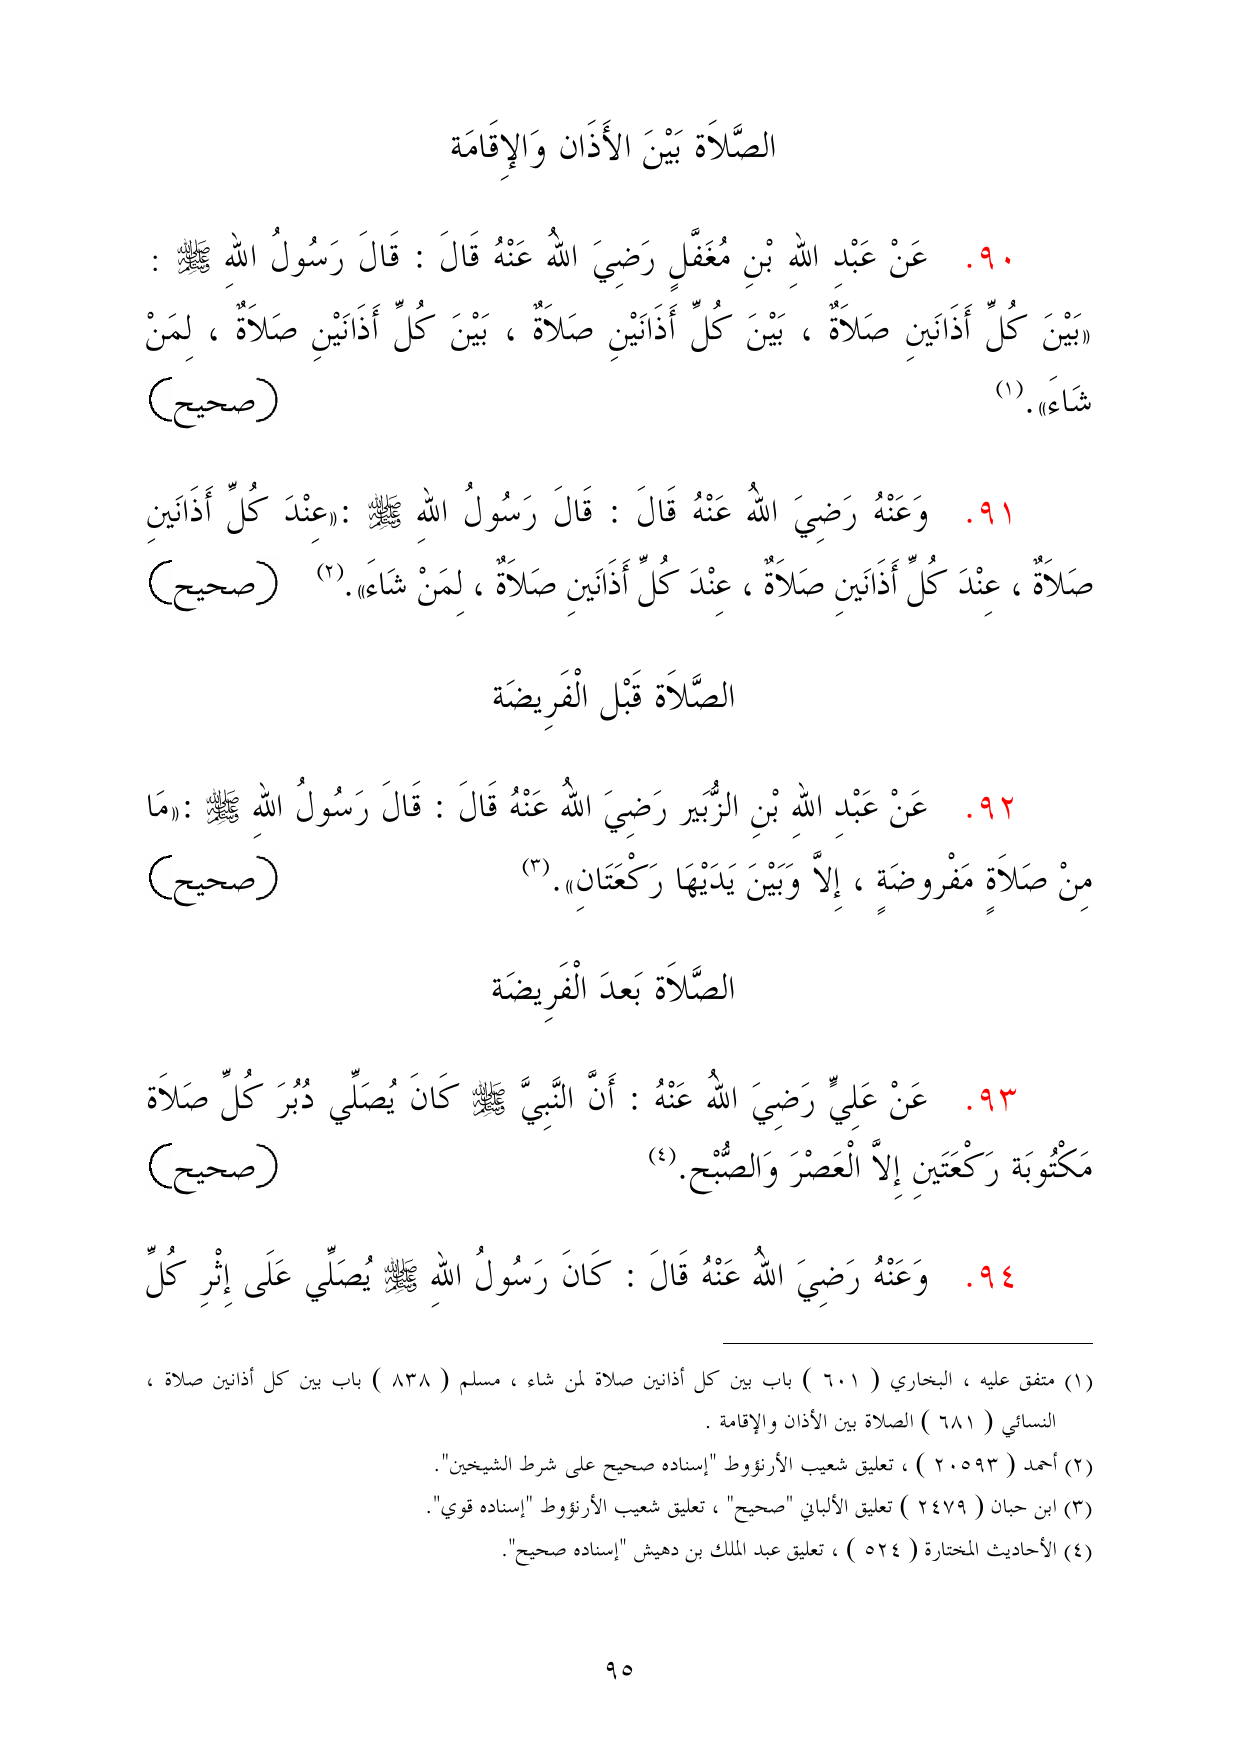 الصَّلاَة بَيْنَ الأَذَان وَالإِقَامَة
٩٠. عَنْ عَبْدِ اللهِ بْنِ مُغَفَّلٍ رَضِيَ اللهُ عَنْهُ قَالَ : قَالَ رَسُولُ اللهِ ﷺ :
«بَيْنَ كُلِّ أَذَانَينِ صَلاَةٌ ، بَيْنَ كُلِّ أَذَانَيْنِ صَلاَةٌ ، بَيْنَ كُلِّ أَذَانَيْنِ صَلاَةٌ ، لِمَنْ
شَاءَ».(١) (صحيح)
٩١. وَعَنْهُ رَضِيَ اللهُ عَنْهُ قَالَ : قَالَ رَسُولُ اللهِ ﷺ :«عِنْدَ كُلِّ أَذَانَينِ
صَلاَةٌ ، عِنْدَ كُلِّ أَذَانَينِ صَلاَةٌ ، عِنْدَ كُلِّ أَذَانَينِ صَلاَةٌ ، لِمَنْ شَاءَ».(٢) (صحيح)
الصَّلاَة قَبْل الْفَرِيضَة
٩٢. عَنْ عَبْدِ اللهِ بْنِ الزُّبَير رَضِيَ اللهُ عَنْهُ قَالَ : قَالَ رَسُولُ اللهِ ﷺ :«مَا
مِنْ صَلاَةٍ مَفْروضَةٍ ، إِلاَّ وَبَيْنَ يَدَيْهَا رَكْعَتَانِ».(٣) (صحيح)
الصَّلاَة بَعدَ الْفَرِيضَة
٩٣. عَنْ عَلِيٍّ رَضِيَ اللهُ عَنْهُ : أَنَّ النَّبِيَّ ﷺ كَانَ يُصَلِّي دُبُرَ كُلِّ صَلاَة
مَكْتُوبَة رَكْعَتَينِ إِلاَّ الْعَصْرَ وَالصُّبْح.(٤) (صحيح)
٩٤. وَعَنْهُ رَضِيَ اللهُ عَنْهُ قَالَ : كَانَ رَسُولُ اللهِ ﷺ يُصَلِّي عَلَى إِثْرِ كُلِّ
(١) متفق عليه ، البخاري ( ٦٠١ ) باب بين كل أذانين صلاة لمن شاء ، مسلم ( ٨٣٨ ) باب بين كل أذانين صلاة ،
النسائي ( ٦٨١ ) الصلاة بين الأذان والإقامة .
(٢) أحمد ( ٢٠٥٩٣ ) ، تعليق شعيب الأرنؤوط "إسناده صحيح على شرط الشيخين".
(٣) ابن حبان ( ٢٤٧٩ ) تعليق الألباني "صحيح" ، تعليق شعيب الأرنؤوط "إسناده قوي".
(٤) الأحاديث المختارة ( ٥٢٤ ) ، تعليق عبد الملك بن دهيش "إسناده صحيح".
٩٥